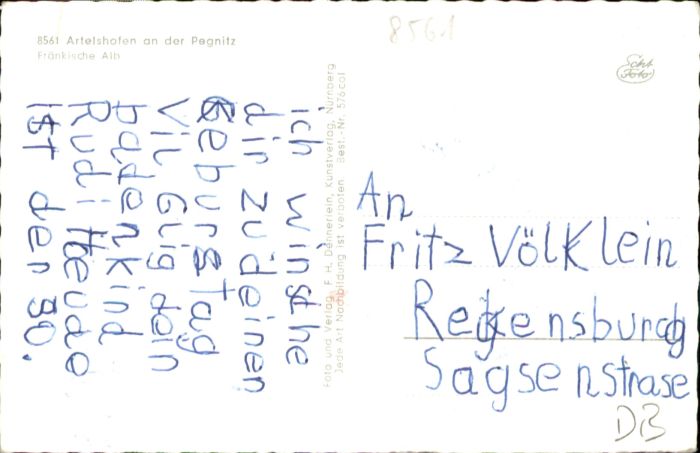 8561 Artelshofen an der Pegnitz
Fränkische Alb
8561
Echt
Foto
ich winsche
dir zu deinen
Geburstag
Vil Glig dein
padenkind
Rudi Heude
ist der 30.
Foto und Verlag F. H. Dennerlein, Kunstverlag, Nürnberg
Jede Art Nachbildung ist verboten Best.-Nr. 576 col
An
Fritz Völklein
Regensburg
Sagsenstrase
DB